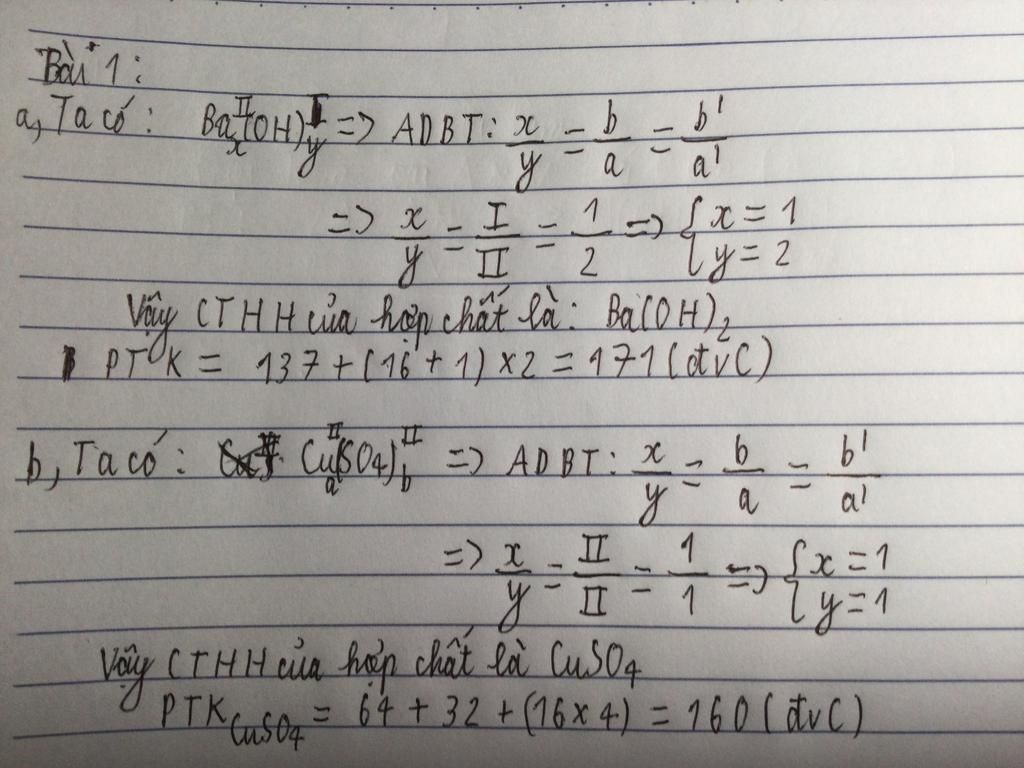 Bài 1:
a, Ta có: Baₓᴵᴵ(OH)ᵧᴵ => ADBT: x/y = b/a = b'/a'
=> x/y = I/II = 1/2 => { x = 1 y = 2
Vậy CTHH của hợp chất là: Ba(OH)₂
PTK = 137 + (16 + 1) × 2 = 171 (đvC)
b, Ta có: Cuₐᴵᴵ(SO4)bᴵᴵ => ADBT: x/y = b/a = b'/a'
=> x/y = II/II = 1/1 => { x = 1 y = 1
Vậy CTHH của hợp chất là CuSO₄
PTK CuSO₄ = 64 + 32 + (16 × 4) = 160 (đvC)